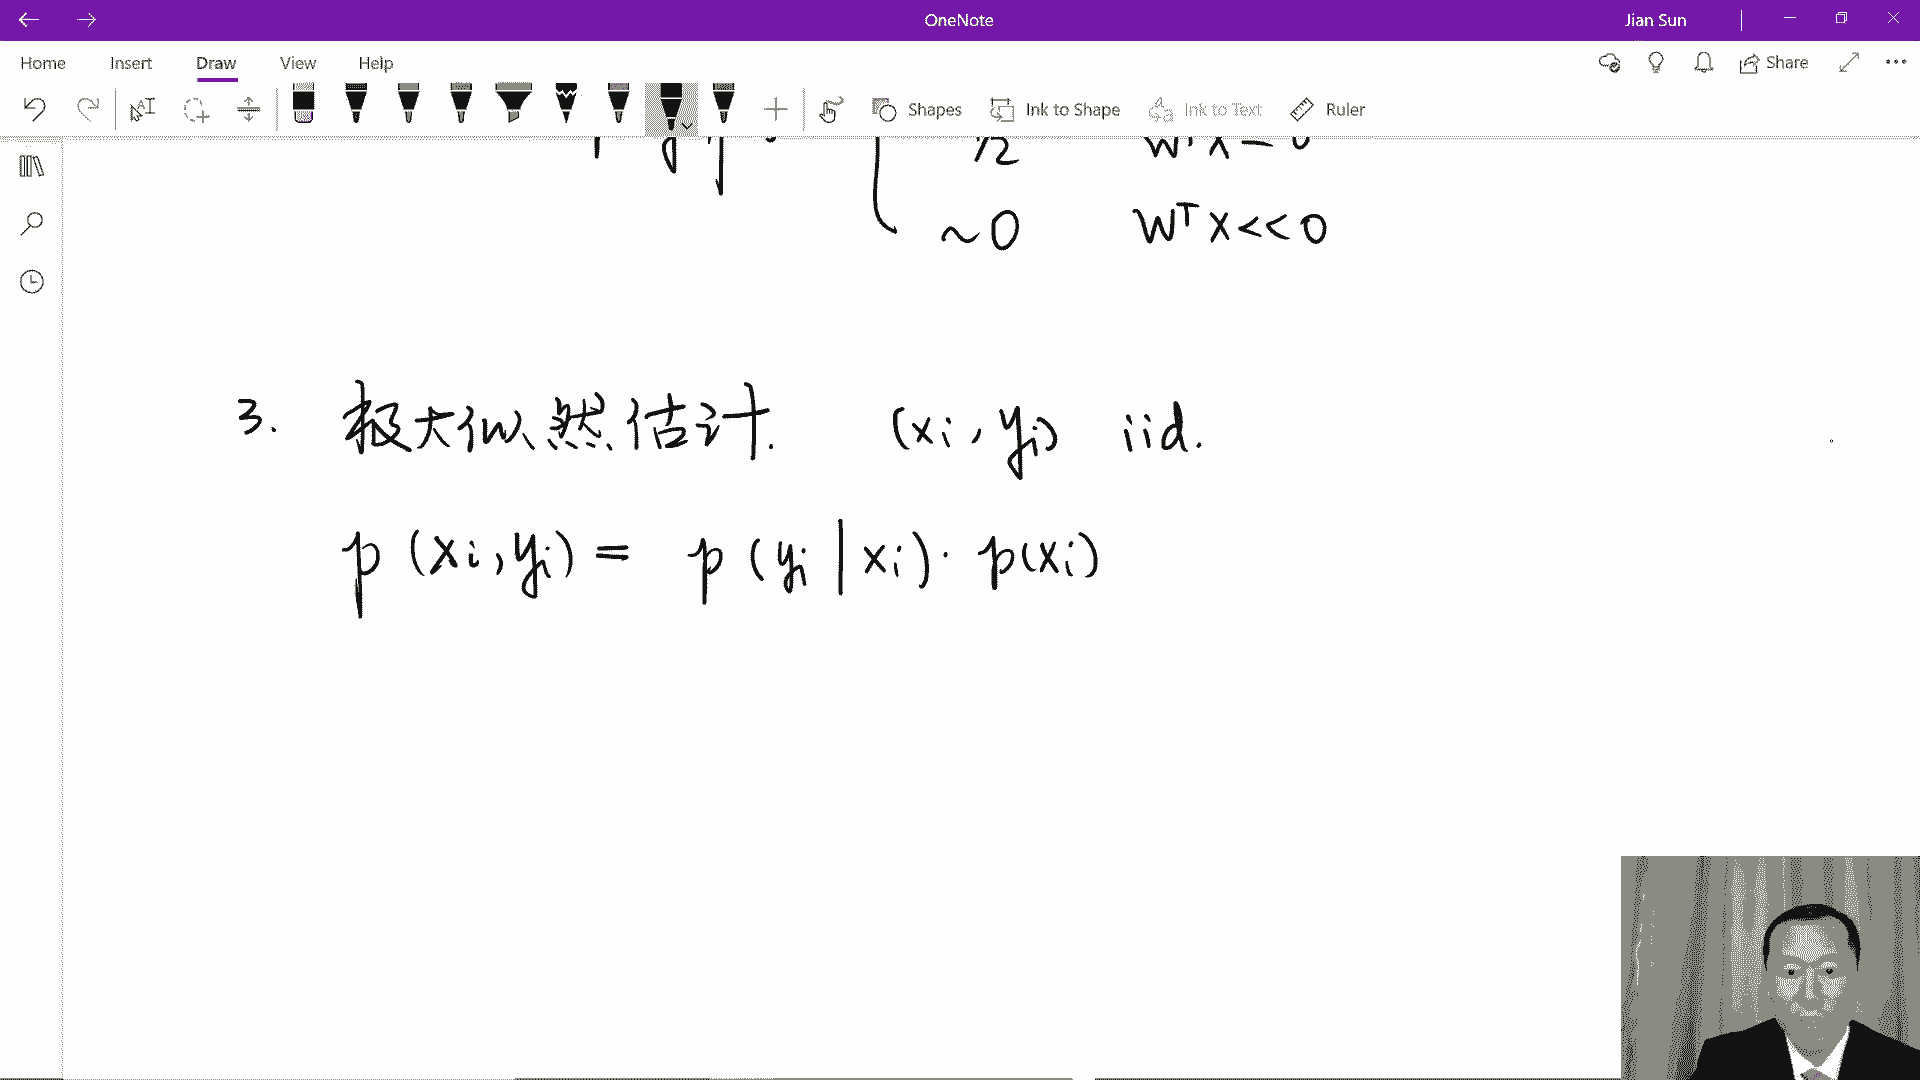 OneNote
Jian Sun
Home Insert Draw View Help
Share
Shapes Ink to Shape Ink to Text Ruler
1/2 WᵀX=0
~0 WᵀX<<0
3. 极大似然估计. (xi, yi) iid.
p(xi, yi) = p(yi | xi)· p(xi)